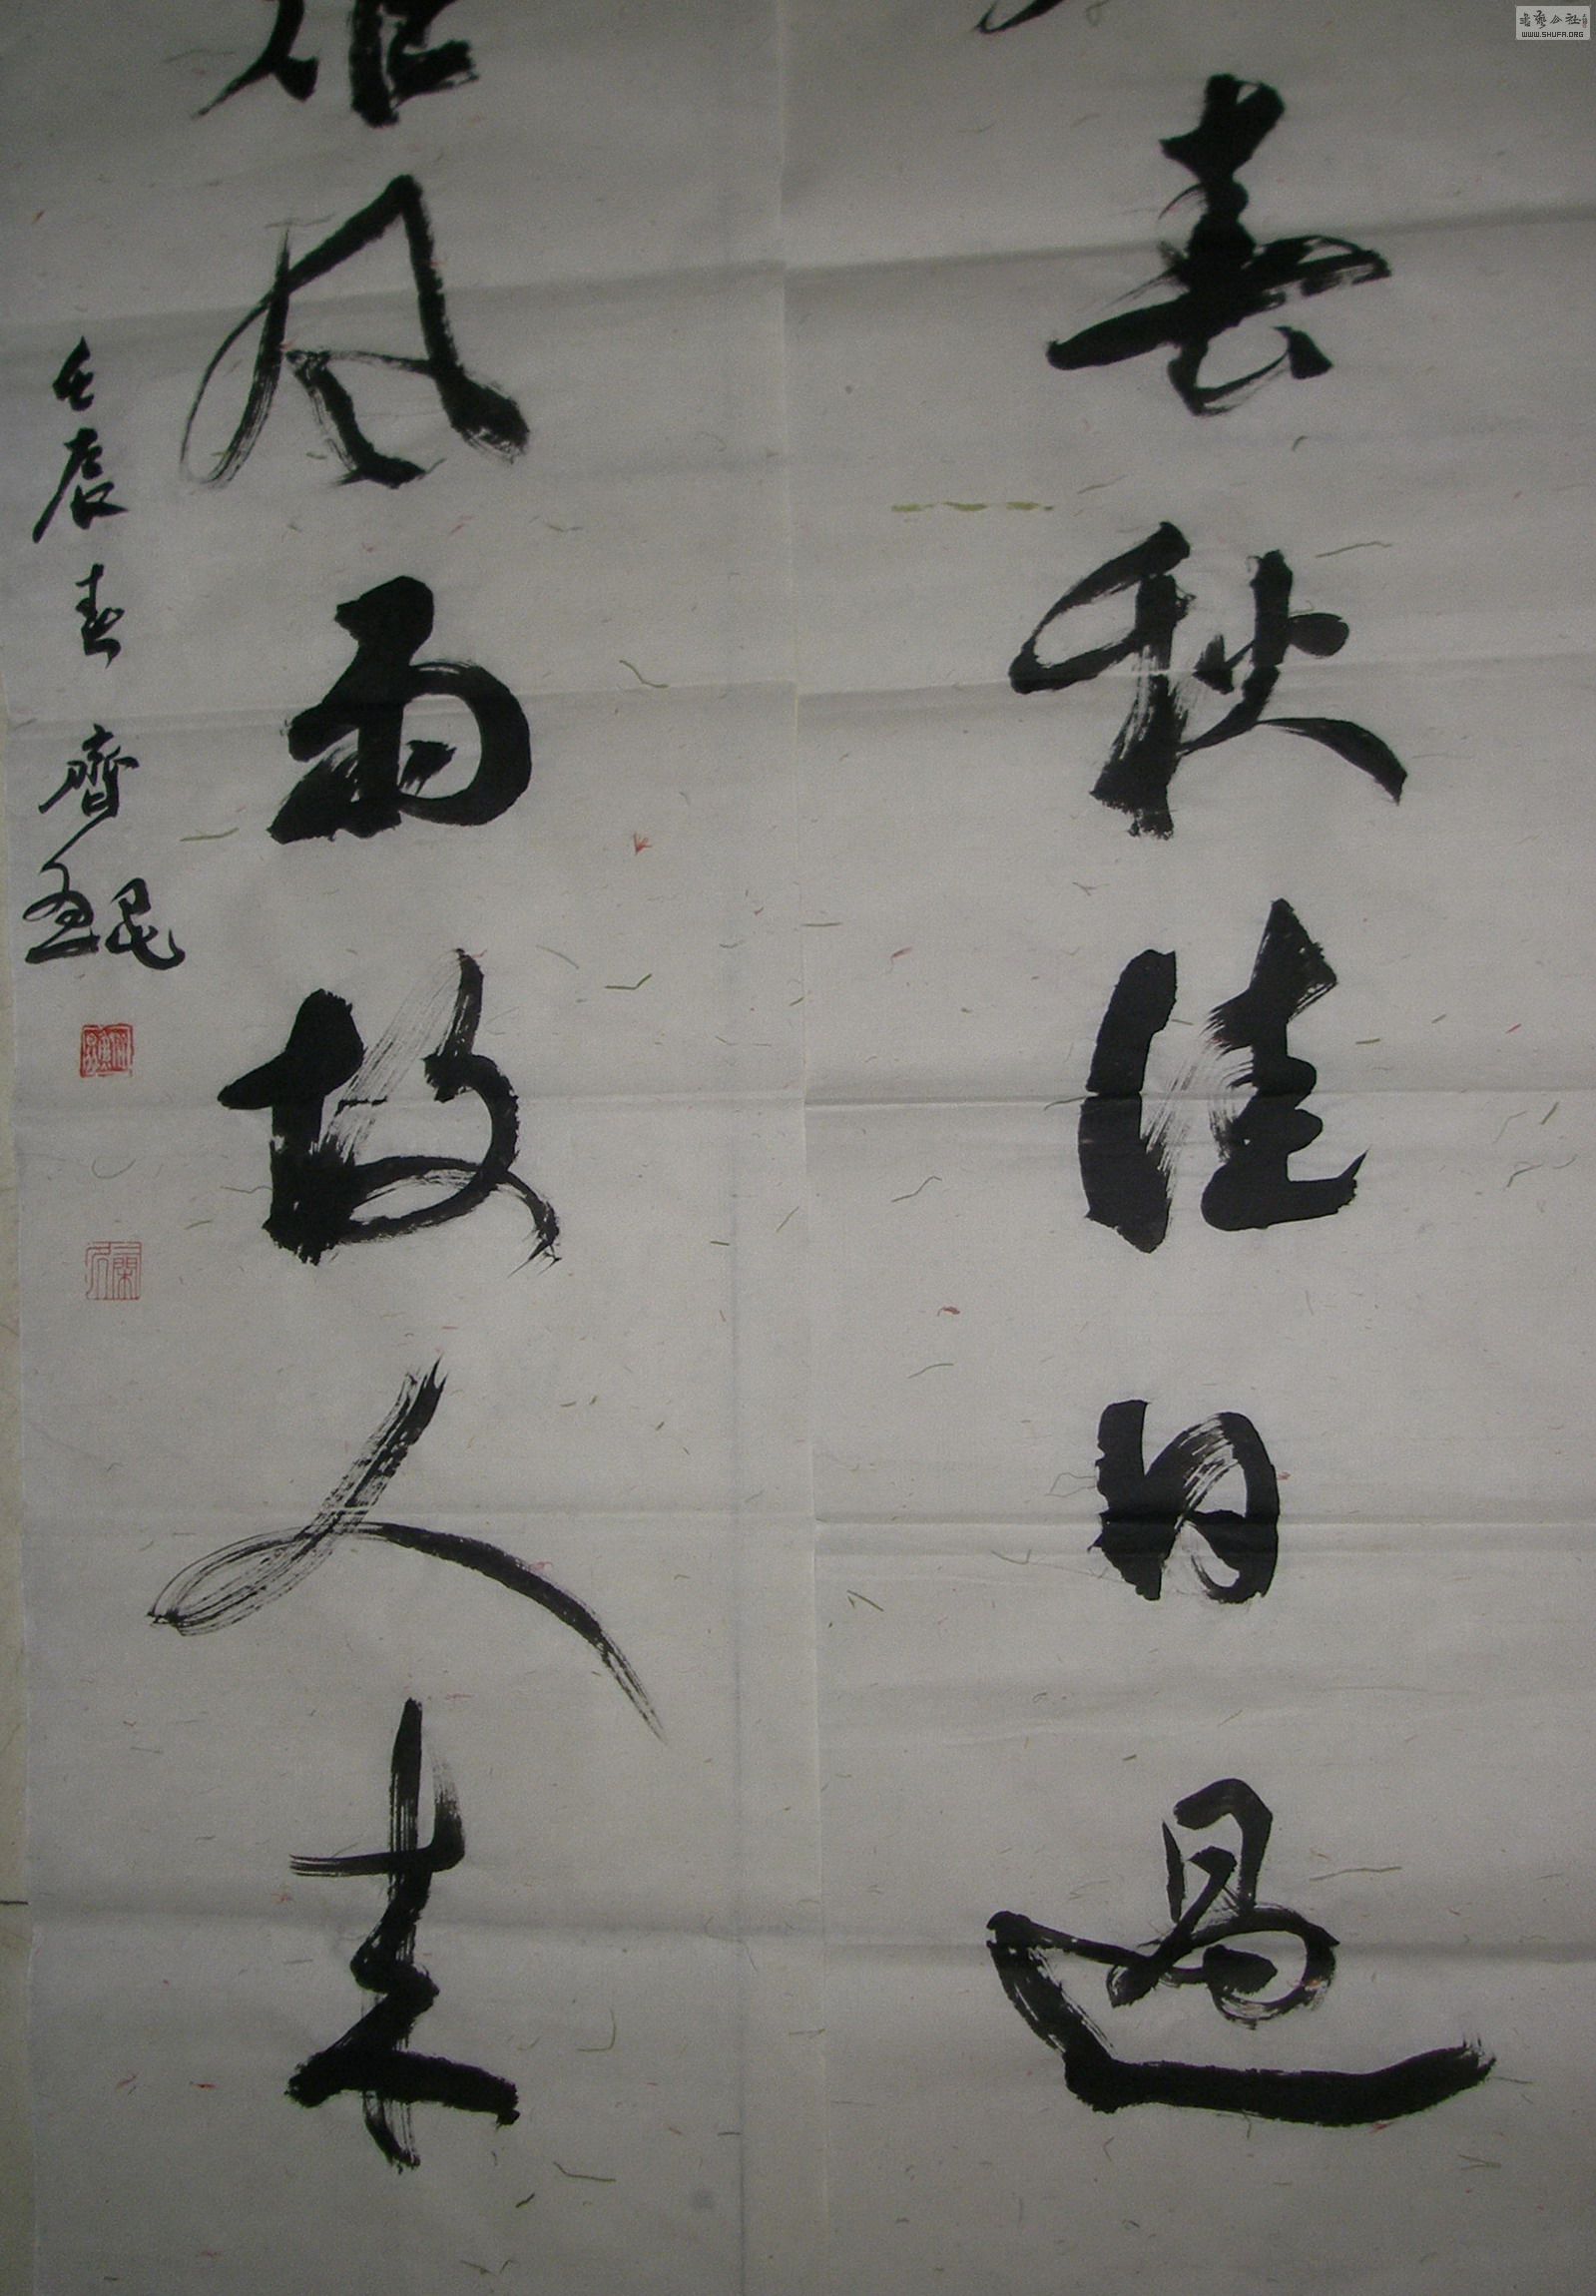 春秋佳日過
風雨故人来
壬辰春 齊
WWW.SHUFA.ORG